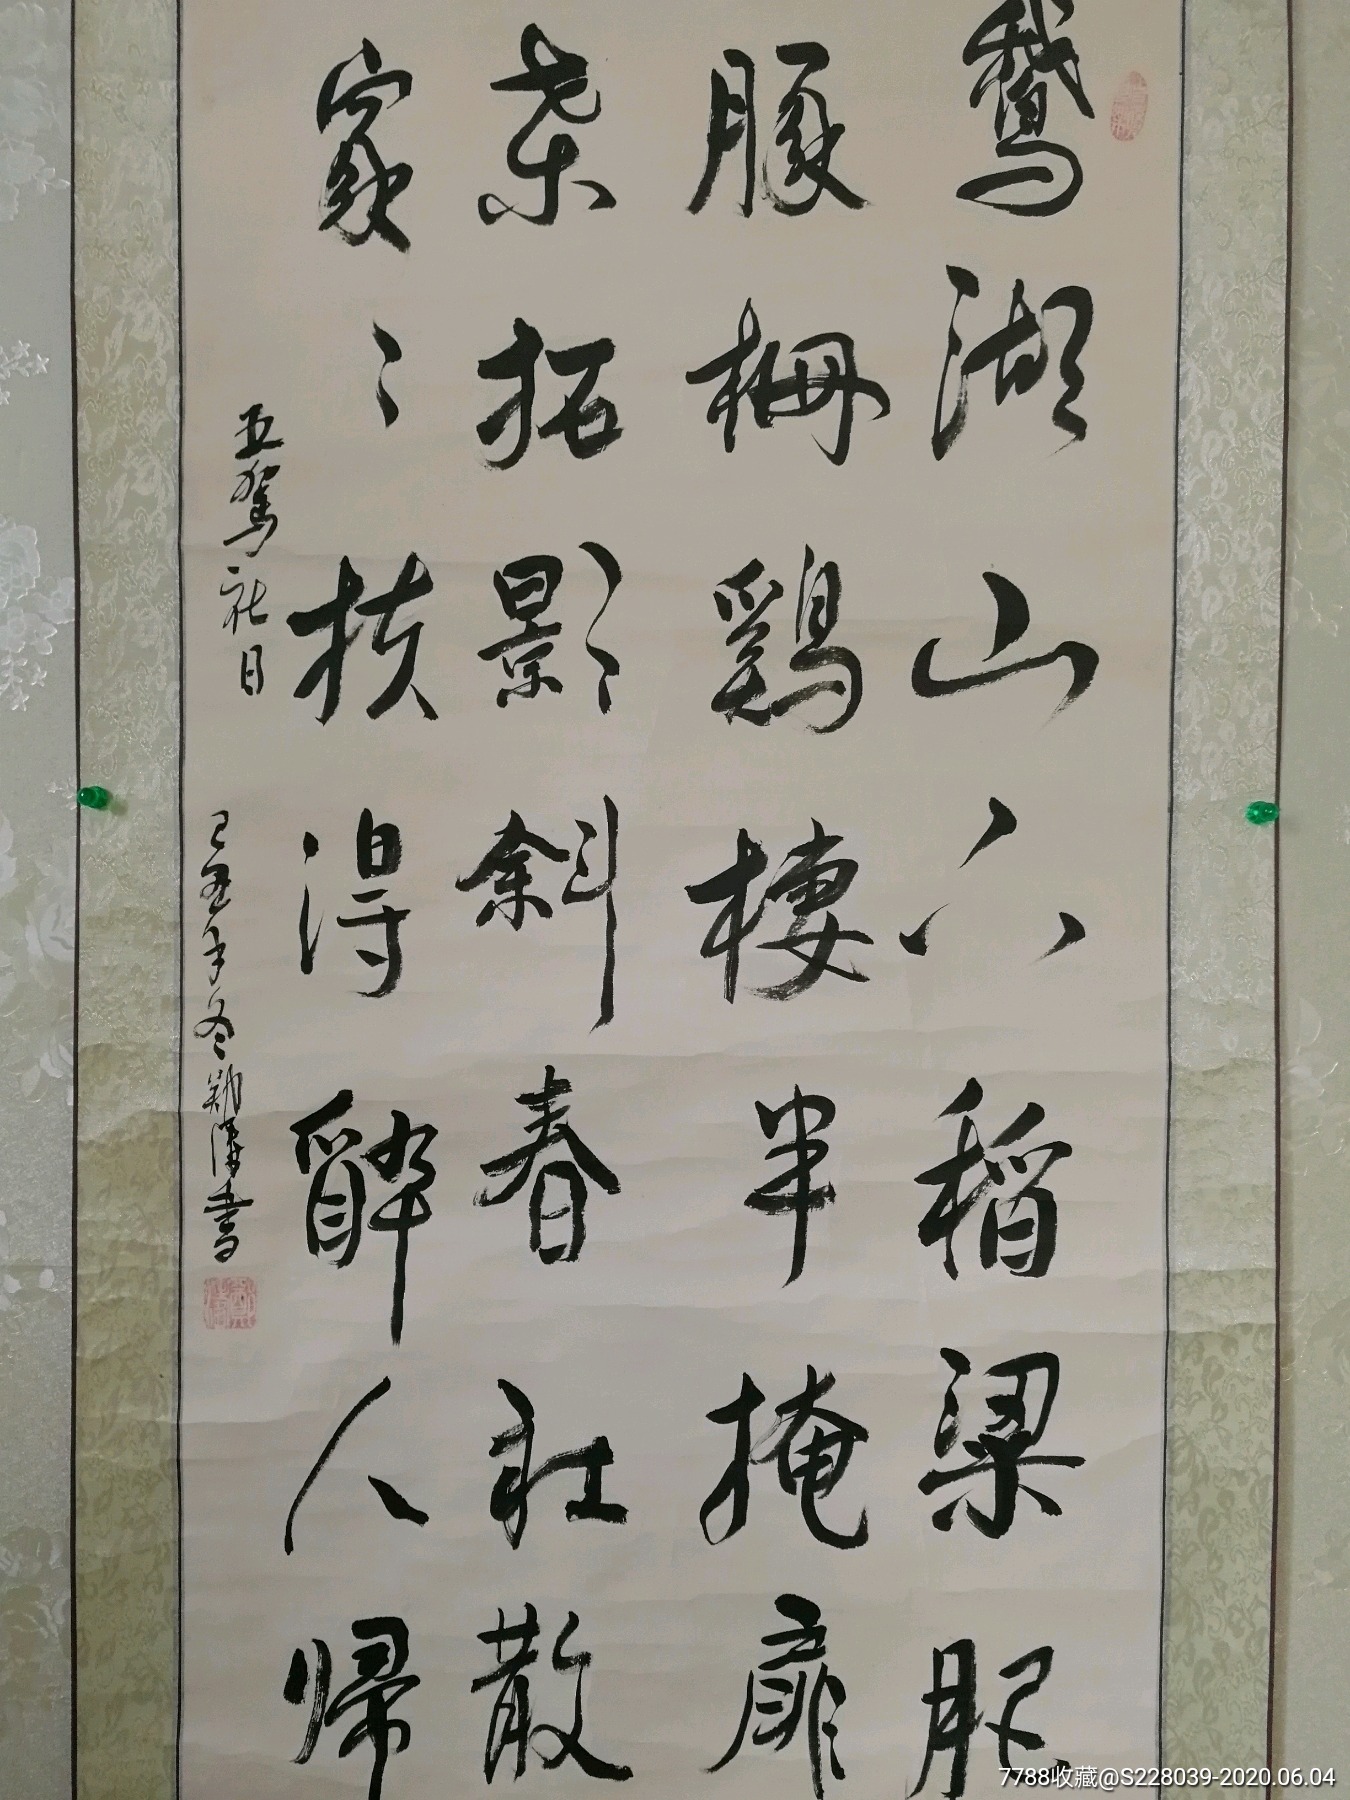 鵝湖山下稻梁肥
豚栅鷄棲半掩扉
桑拓影斜春社散
家〻扶得醉人歸
王駕社日
己丑年冬 書
7788收藏@S228039-2020.06.04